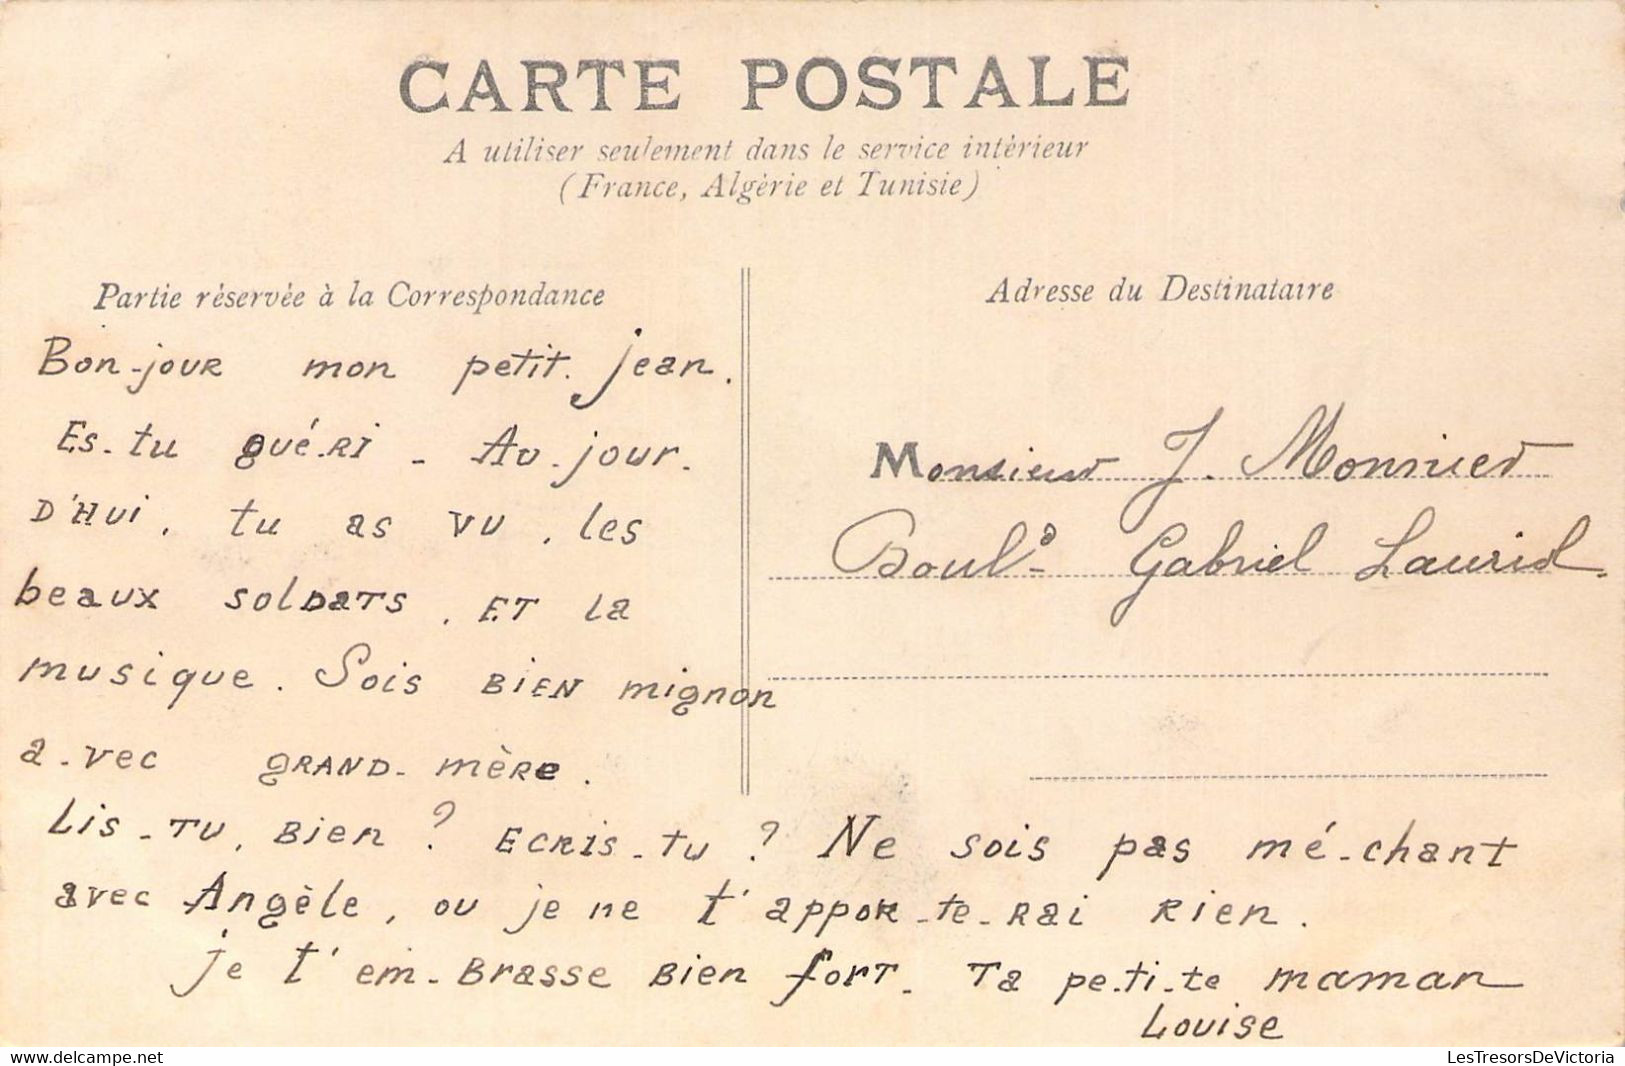 CARTE POSTALE
A utiliser seulement dans le service intérieur
(France, Algérie et Tunisie)
Partie réservée à la Correspondance
Bon-jour mon petit. jean.
Es-tu gué-RI - Au-jour-
D'HUI, tu as vu, les
beaux SOLDATS, ET la
musique. Sois BIEN mignon
a-vec GRAND-mère.
Lis-TU, Bien ? ECRIS-tu ? Ne sois pas mé-chant
avec Angèle, ou je ne t'appor-te-rai rien.
je t'em-Brasse Bien fort. Ta pe-ti-te maman
Louise
Adresse du Destinataire
Monsieur J. Monnier
Boul^d Gabriel Lauriol.
LesTresorsDeVictoria
delcampe.net